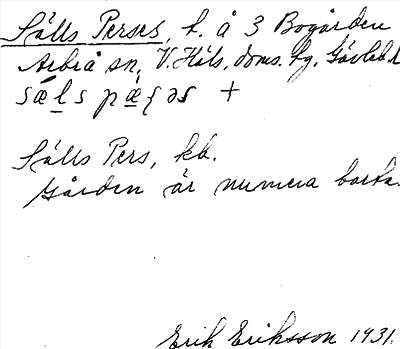 Sälls Perses, t. å 3 Bogården
Arbrå sn, V. Häls. doms. hg, Gävleb. l
sæl̲s pæ̲ʃəs +
Sälls Pers, kb.
Gården är numera borta.
Erik Eriksson 1931.